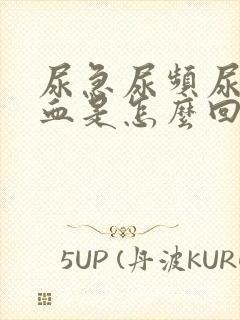 尿急尿頻尿
血是怎麼回
5UP (丹波KUR